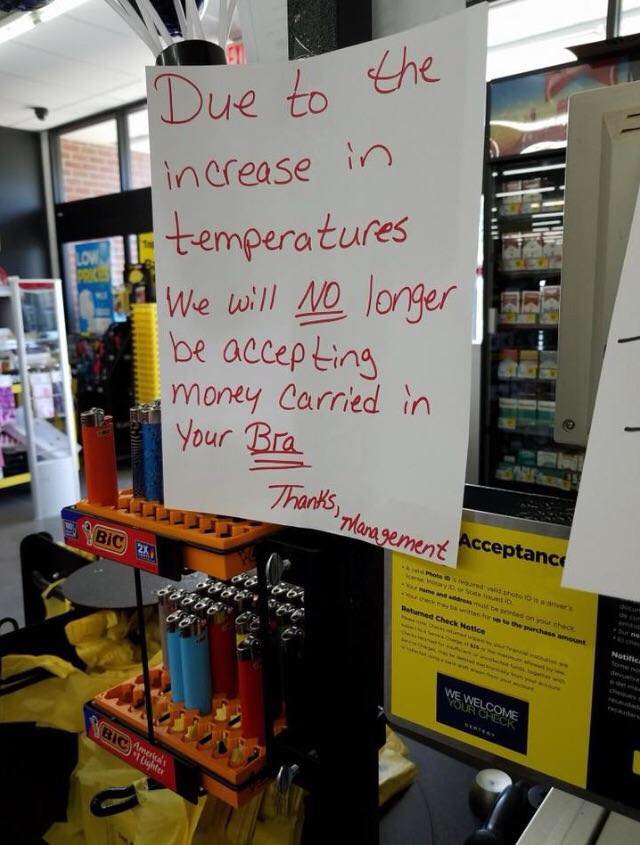 Due to the
increase in
temperatures
We will NO longer
be accepting
money carried in
your Bra
Thanks,
Management
LOW
PRICES
BIC
2X
BIC
America's
#1 Lighter
Acceptance
A valid Photo ID is required: valid photo ID is a driver's
license, Military ID, or State issued ID.
Your name and address must be printed on your check.
Your check may be written for up to the purchase amount
Returned Check Notice
WE WELCOME
YOUR CHECK